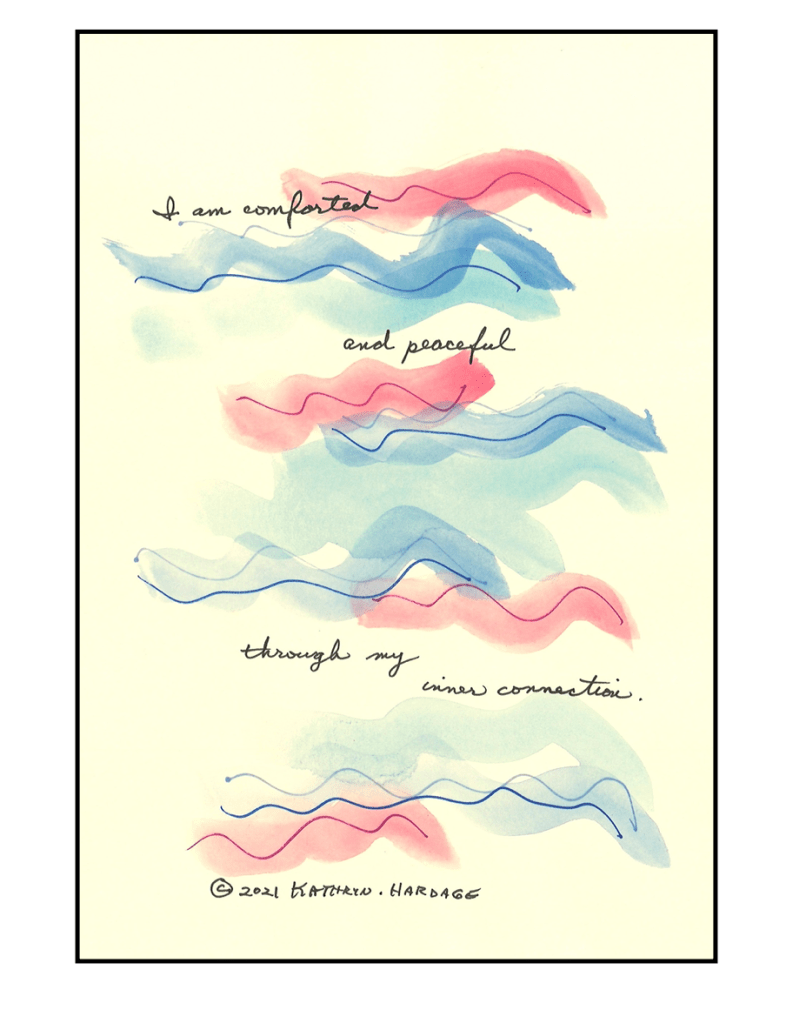 I am comforted
and peaceful
through my
inner connection.
© 2021 KATHRYN · HARDAGE